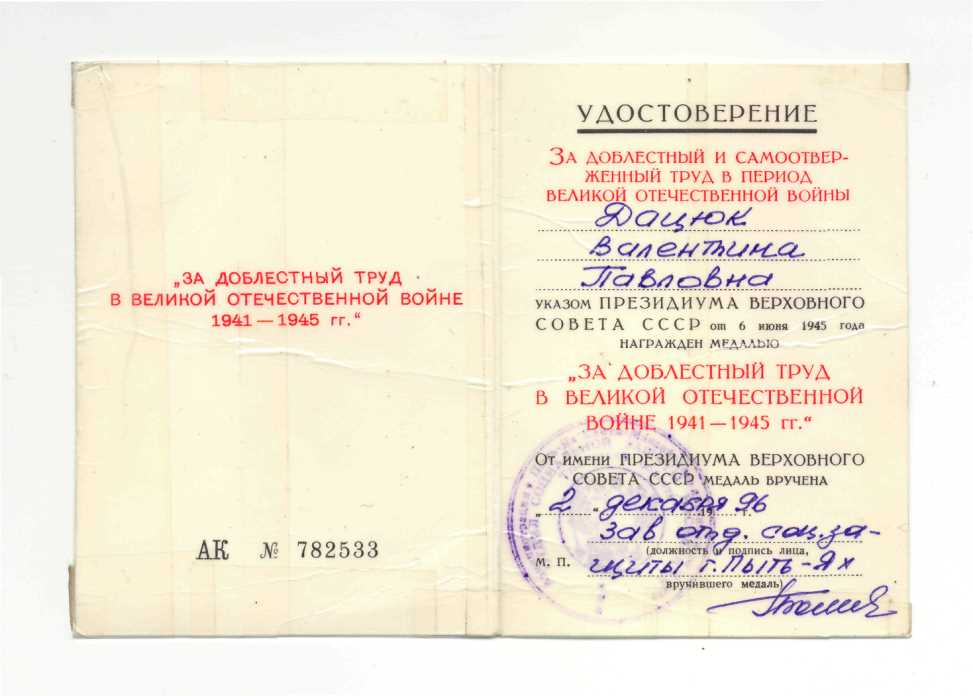 „ЗА ДОБЛЕСТНЫЙ ТРУД
В ВЕЛИКОЙ ОТЕЧЕСТВЕННОЙ ВОЙНЕ
1941—1945 гг.“
АК № 782533
УДОСТОВЕРЕНИЕ
ЗА ДОБЛЕСТНЫЙ И САМООТВЕР-
ЖЕННЫЙ ТРУД В ПЕРИОД
ВЕЛИКОЙ ОТЕЧЕСТВЕННОЙ ВОЙНЫ
Дацюк
Валентина
Павловна
УКАЗОМ ПРЕЗИДИУМА ВЕРХОВНОГО
СОВЕТА СССР от 6 июня 1945 года
НАГРАЖДЕН МЕДАЛЬЮ
„ЗА ДОБЛЕСТНЫЙ ТРУД
В ВЕЛИКОЙ ОТЕЧЕСТВЕННОЙ
ВОЙНЕ 1941—1945 гг.“
ОТ ИМЕНИ ПРЕЗИДИУМА ВЕРХОВНОГО
СОВЕТА СССР МЕДАЛЬ ВРУЧЕНА
„ 2 “ декабря 96 г.
зав отд. соц.за-
(должность и подпись лица,
М. П. щиты г.Пыть-Ях
вручившего медаль)